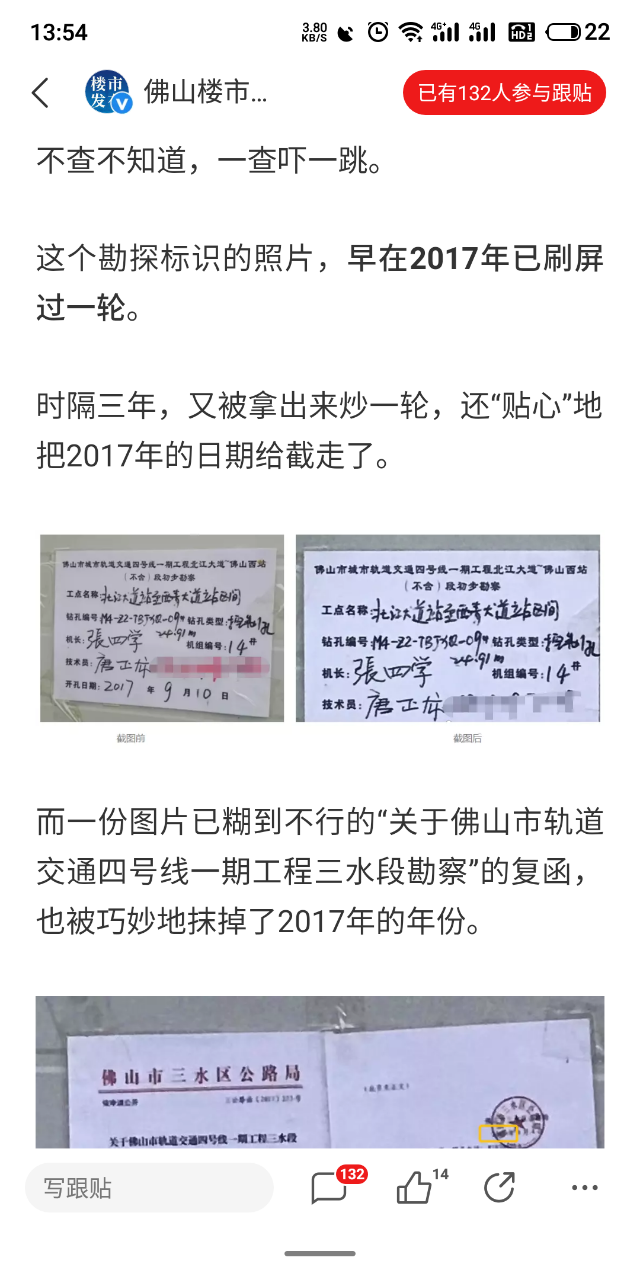 13:54
3.80
KB/S
4G+
4G
HD 1
2
22
楼市
发
佛山楼市...
已有132人参与跟贴
不查不知道，一查吓一跳。
这个勘探标识的照片，早在2017年已刷屏
过一轮。
时隔三年，又被拿出来炒一轮，还“贴心”地
把2017年的日期给截走了。
佛山市城市轨道交通四号线一期工程北江大道~佛山西站
（不含）段初步勘察
工点名称:北江大道站至西青大道立站区间
钻孔编号:M4-22-TBJXQ-09# 钻孔类型:
24.91m
机长:張四学 机组编号:14#
技术员:唐正
开孔日期:2017 年 9 月 10 日
截图前
佛山市城市轨道交通四号线一期工程北江大道~佛山西站
（不含）段初步勘察
工点名称:北江大道站至西青大道立站区间
钻孔编号:M4-22-TBJXQ-09# 钻孔类型:
24.91m
机长:張四学 机组编号:14#
技术员:唐正
截图后
而一份图片已糊到不行的“关于佛山市轨道
交通四号线一期工程三水段勘察”的复函，
也被巧妙地抹掉了2017年的年份。
佛山市三水区公路局
关于佛山市轨道交通四号线一期工程三水段
写跟贴
132
14